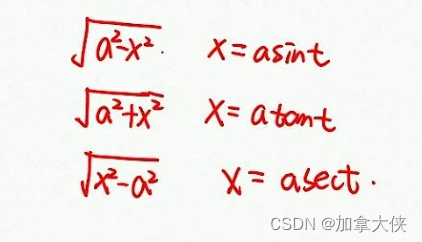 √a²-x². x=asint
√a²+x² x=atant
√x²-a² x=asect.
CSDN @加拿大侠